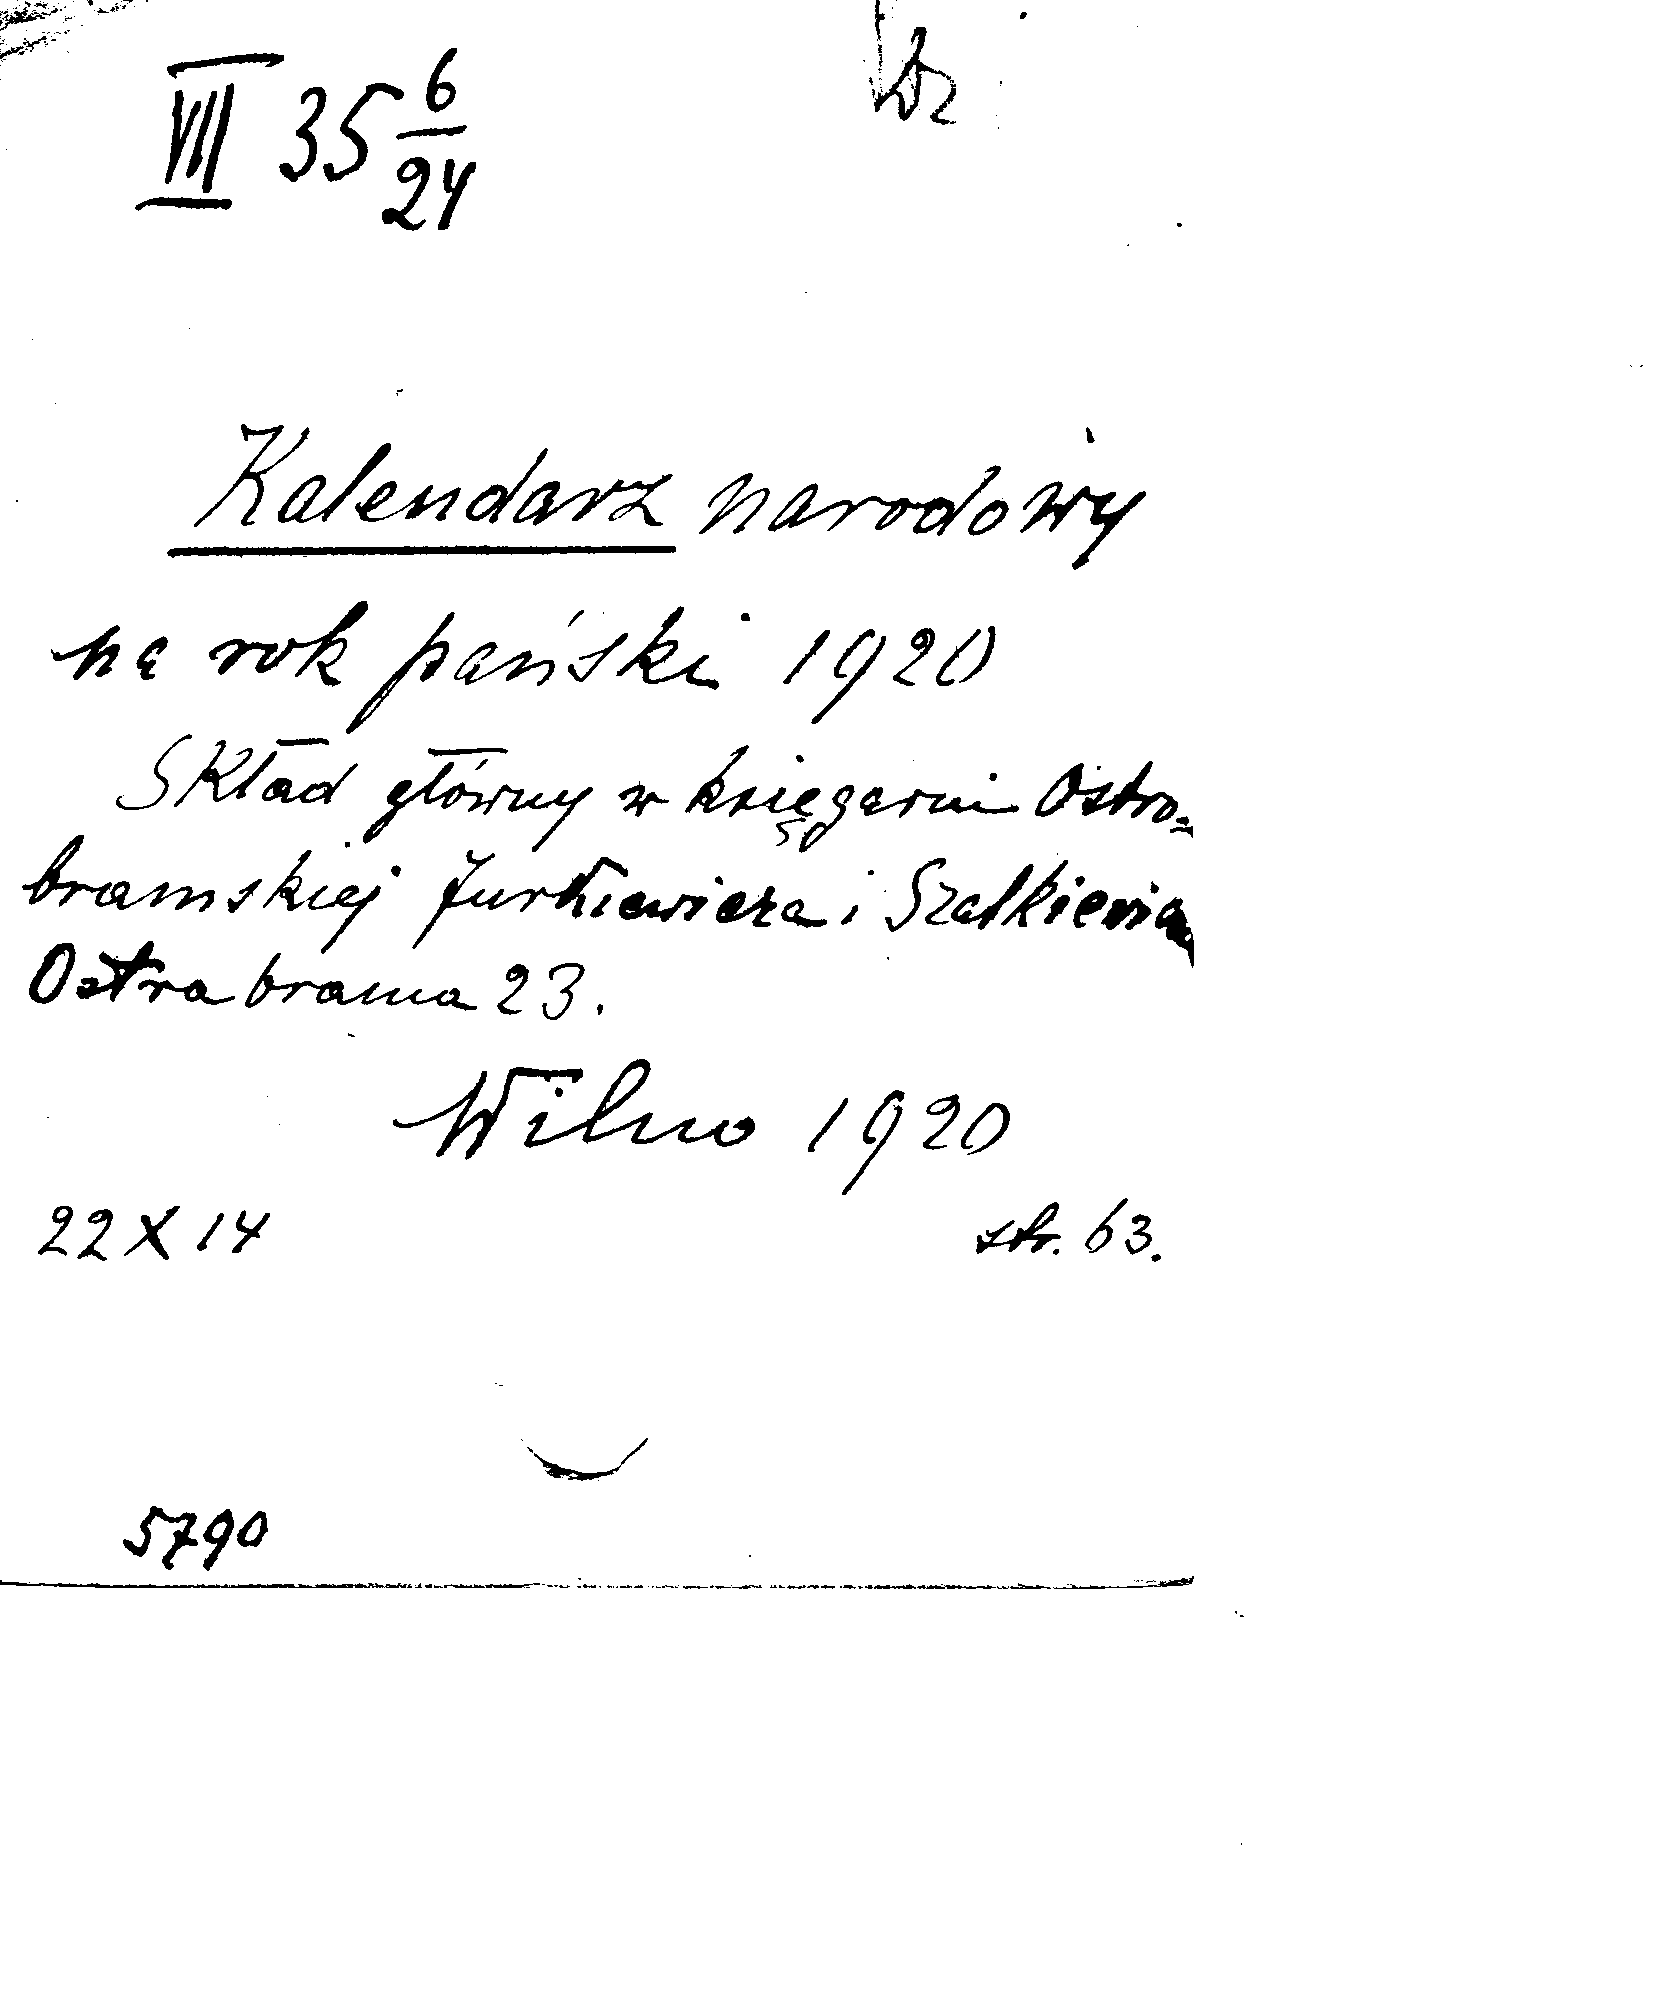 VII 35 6/24 Dz
Kalendarz narodowy
na rok pański 1920
Skład główny w księgarni Ostro=
bramskiej Jurkiewicza i Szalkiewicza
Ostra brama 23.
Wilno 1920
22 X 14 str. 63.
5790